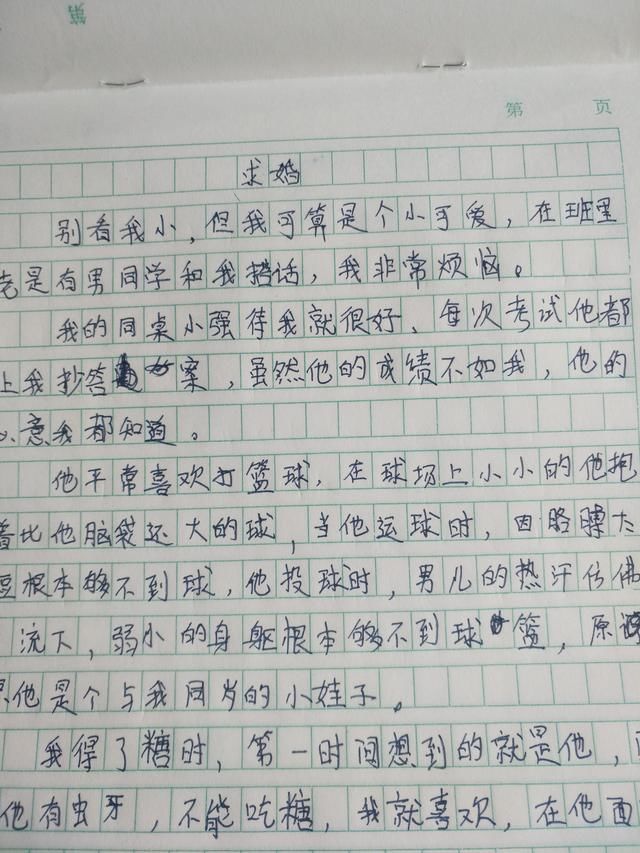 第 页
求婚
别看我小，但我可算是个小可爱，在班里
老是有男同学和我搭话，我非常烦恼。
我的同桌小强待我就很好、每次考试他都
上我抄答案，虽然他的成绩不如我，他的
心意我都知道。
他平常喜欢打篮球，在球场上小小的他抱
着比他脑袋还大的球，当他运球时，因胳膊太
短根本够不到球，他投球时，男儿的热汗仿佛
流下，弱小的身躯根本够不到球篮，原
他是个与我同岁的小娃子。
我得了糖时，第一时间想到的就是他，
他有虫牙，不能吃糖，我就喜欢，在他面